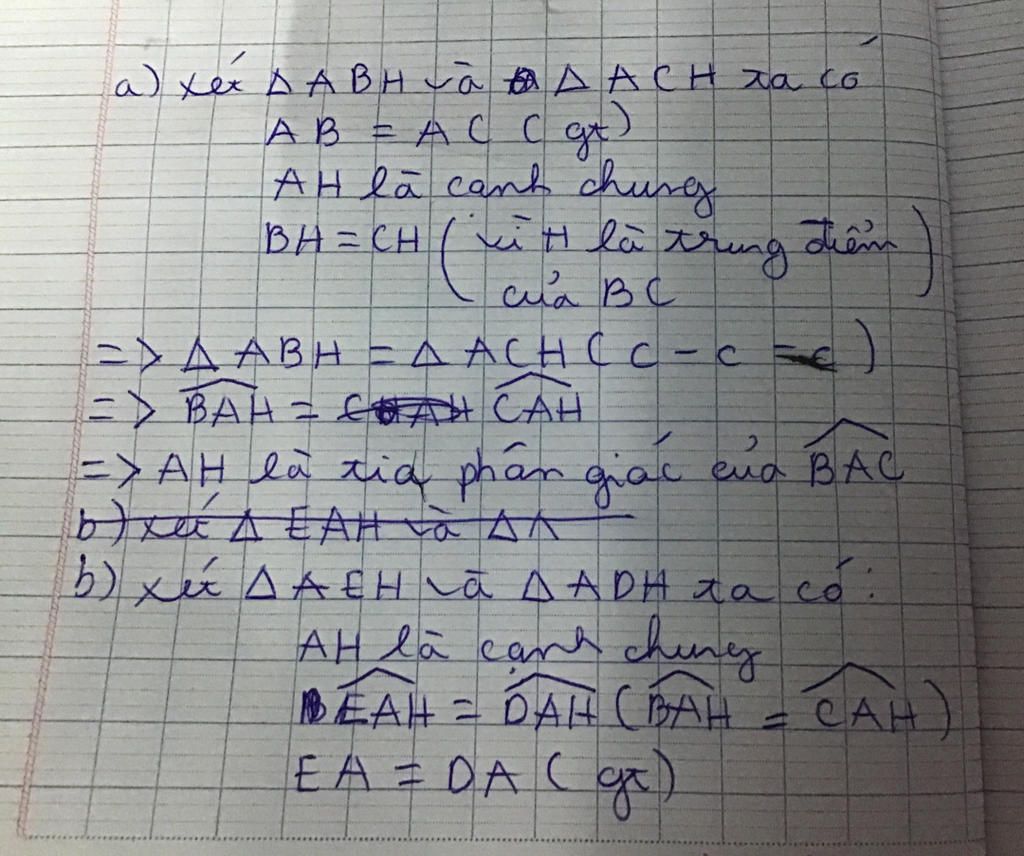 a) xét Δ ABH và Δ ACH ta có
AB = AC (gt)
AH là cạnh chung
BH = CH (vì H là trung điểm
của BC)
=> Δ ABH = Δ ACH (c - c - c)
=> BAH = CAH
=> AH là tia phân giác của BAC
b) xét Δ EAH và Δ A
b) xét Δ AEH và Δ ADH ta có:
AH là cạnh chung
EAH = DAH (BAH = CAH)
EA = DA (gt)